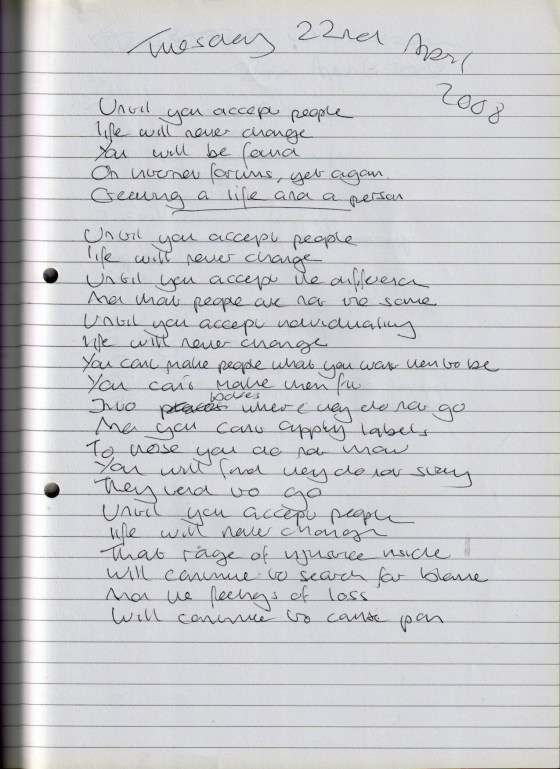 Tuesday 22nd April
2008
Until you accept people
life will never change
You will be found
On internet forums, yet again.
Creating a life and a person
Until you accept people
life will never change
Until you accept the difference
And that people are not the same
Until you accept individuality
life will never change
You can't make people what you want them to be
You can't make them fit
Into places boxes where they do not go
And you can't apply labels
To those you do not know
You will find they do not stay
They tend to go
Until you accept people
life will never change
That rage of injustice inside
Will continue to search for blame
And the feelings of loss
Will continue to cause pain